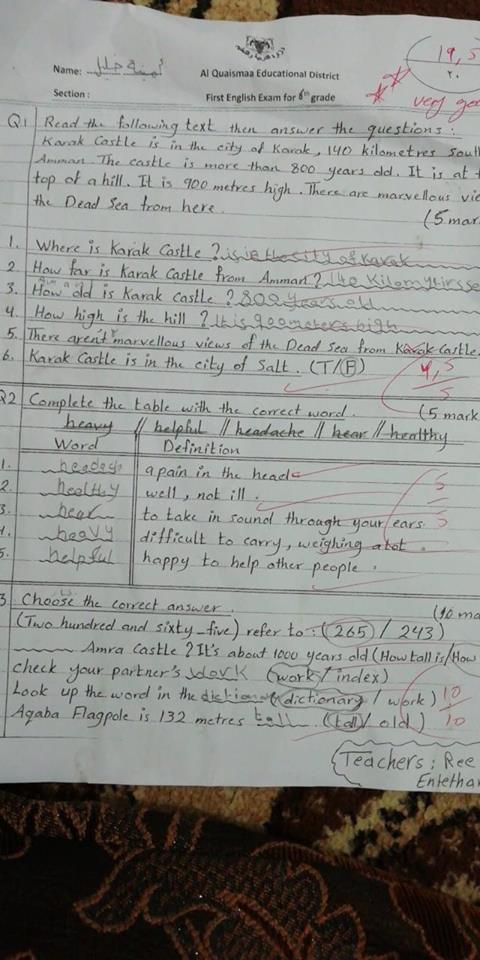 Name: أمينة خليل
19,5
٢٠
very
Al Quaismaa Educational District
Section :
First English Exam for 6th grade
Q1 Read the following text then answer the questions :
Karak Castle is in the city of Karak, 140 kilometres
Amman. The castle is more than 800 years old. It is at
top of a hill. It is 900 metres high. There are marvellous
the Dead Sea from here.
(5
1. Where is Karak Castle ? is in the city of Karak
2. How far is Karak Castle from Amman? 140
3. How old is Karak Castle ? 800 years old
4. How high is the hill ? It is 900 meters high
5. There aren't marvellous views of the Dead Sea from Karak Castle.
6. Karak Castle is in the city of Salt. (T/F)
4,5
5
Q2 Complete the table with the correct word. (5 mark
heavy // helpful // headache // hear // healthy
Word Definition
1. a pain in the head
2. healthy well, not ill.
3. hear to take in sound through your ears
4. heavy difficult to carry, weighing a lot.
5. helpful happy to help other people.
5
5
3 Choose the correct answer. (10
(Two hundred and sixty_five) refer to : (265 / 243)
Amra Castle ? It's about 1000 years old (How tall is / How
check your partner's work (work / index)
Look up the word in the (dictionary / work)
Aqaba Flagpole is 132 metres tall (tall / old)
10
10
Teachers :